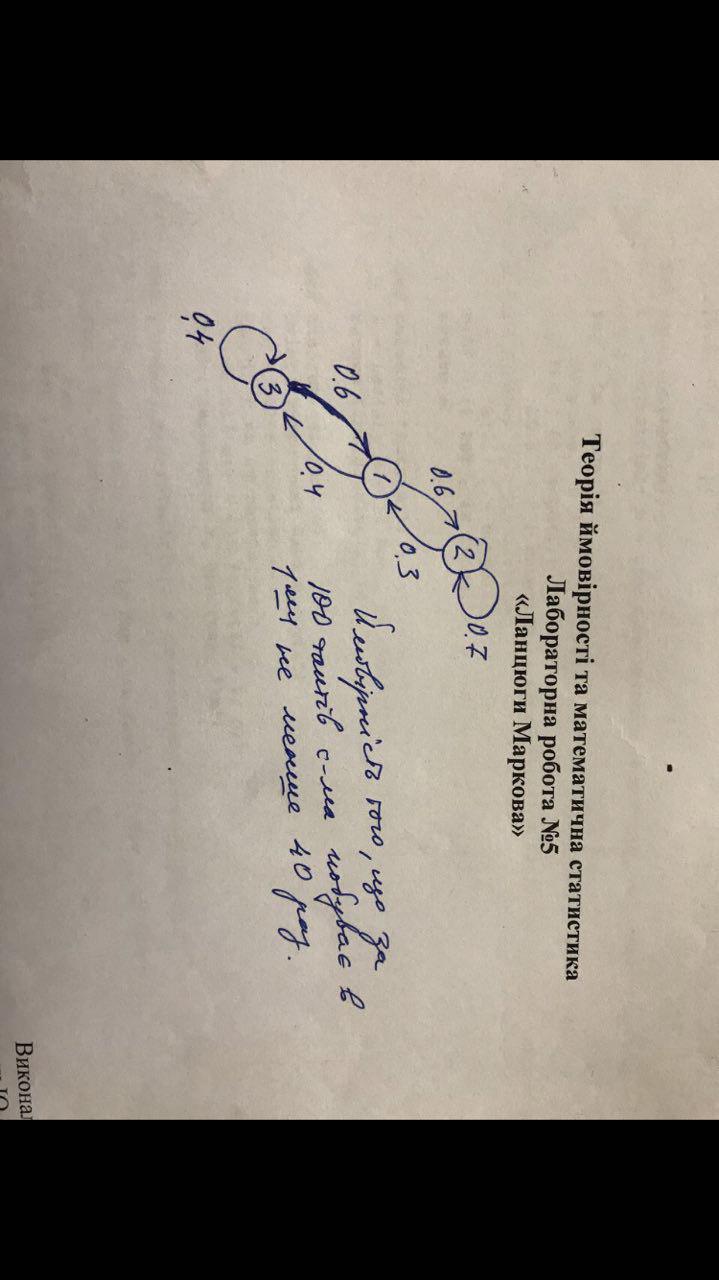 Теорія ймовірності та математична статистика
Лабораторна робота №5
«Ланцюги Маркова»
0.7
2
0.6
0.3
1
0.6
0.4
3
0,4
Ймовірність того, що за
100 тактів с-ма побуває в
1му не менше 40 раз.
Виконал